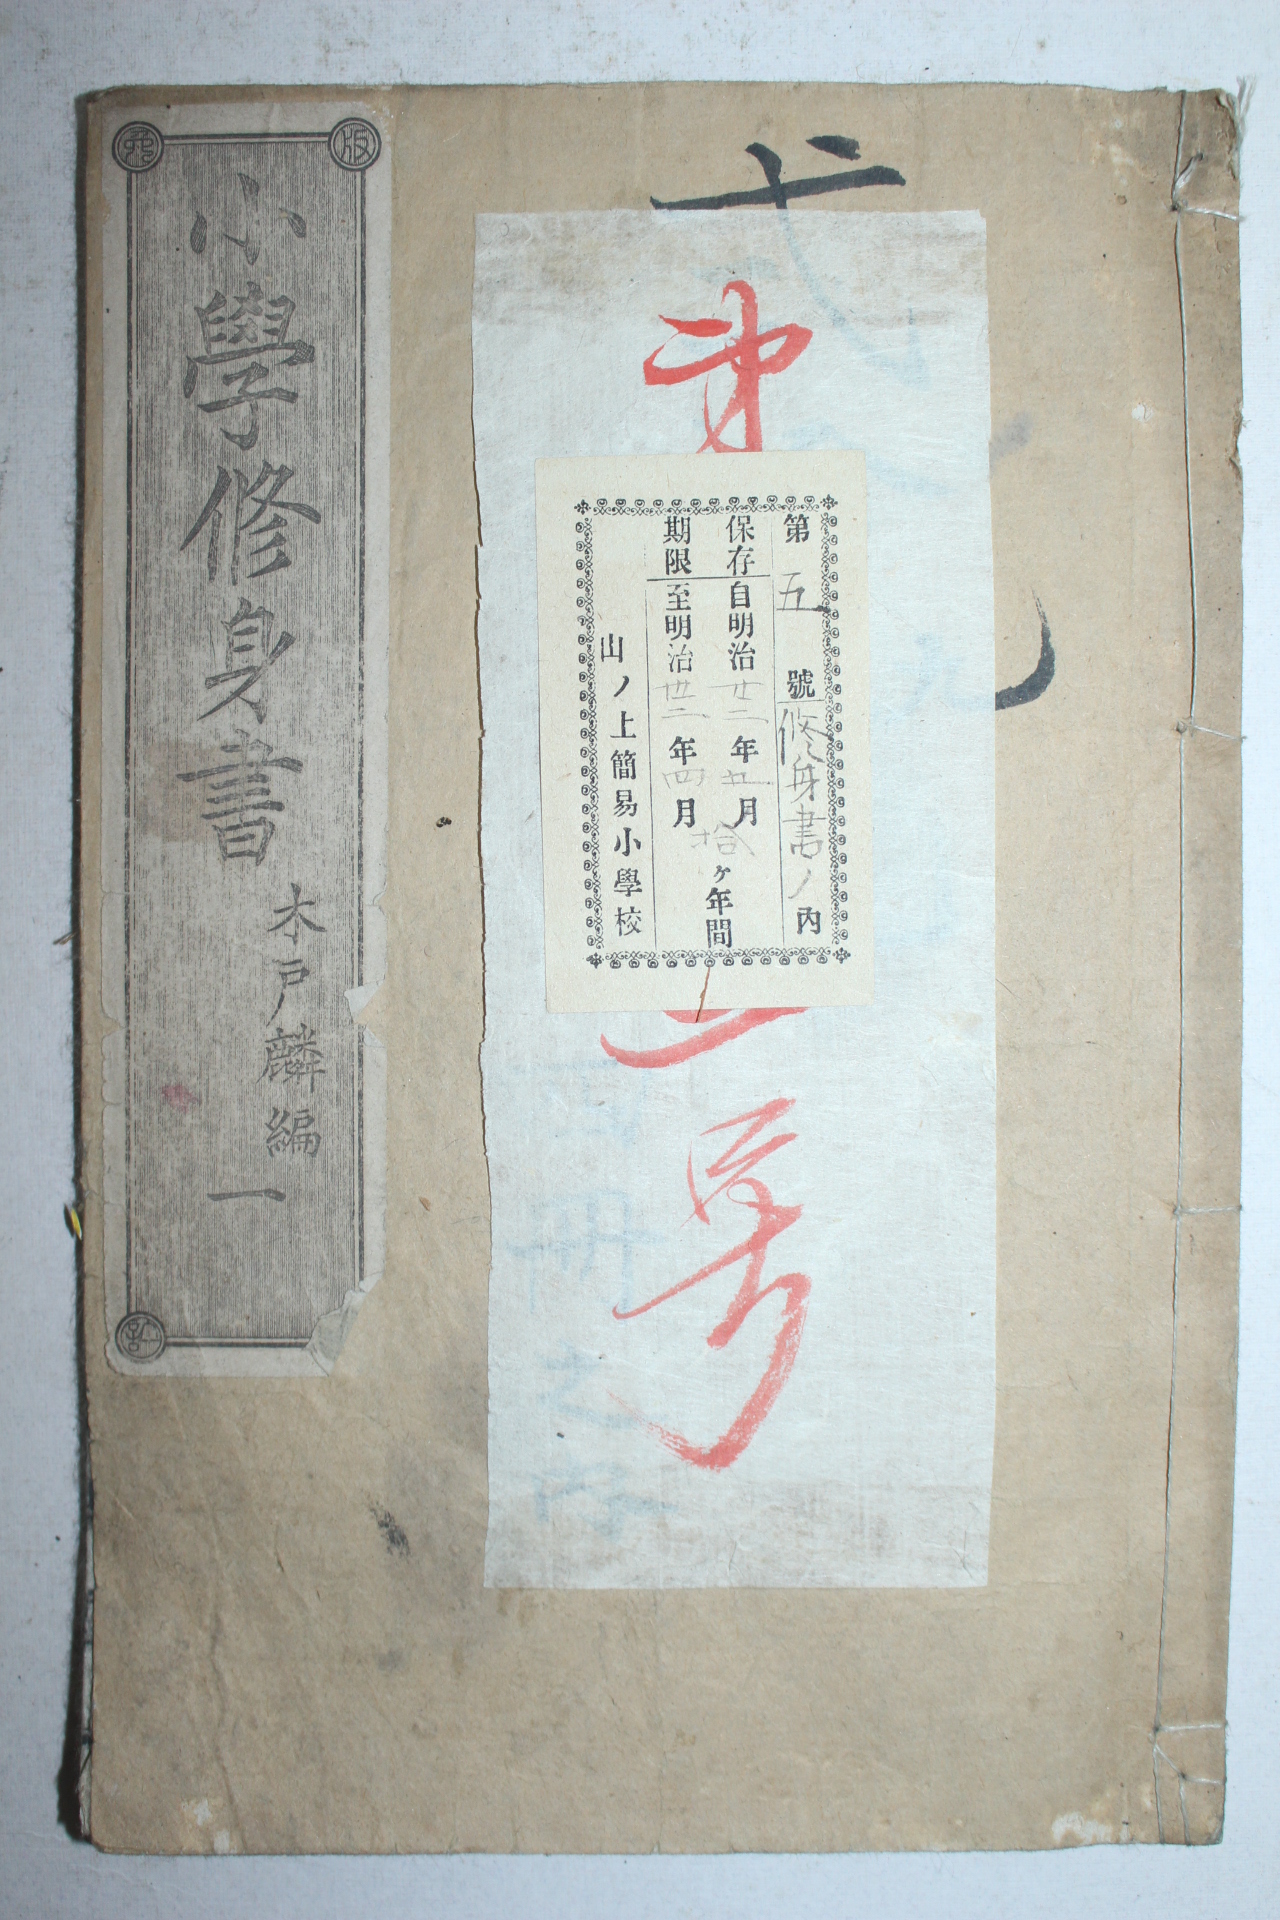 第五號修身書ノ內
保存自明治廿二年五月
期限至明治卅二年四月
拾ヶ年間
山ノ上簡易小學校
第
号
小學修身書
木戸麟編
一
版